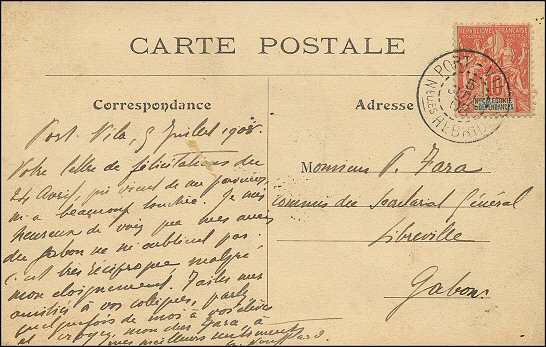 CARTE POSTALE
Correspondance
Port-Vila, 5 Juillet 1908.
Votre lettre de félicitations du
24 Avril, qui vient de me parvenir,
m'a beaucoup touché. Je suis
heureux de voir que mes amis
du Gabon ne m'oublient pas.
C'est très réciproque malgré
mon éloignement. Faites mes
amitiés à vos collègues, parlez
quelquefois de moi à vos élèves
et croyez, mon cher Fara à
mes meilleurs sentiments
Adresse
Monsieur P. Fara
Commis du Secrétariat Général
Libreville
Gabon
RÉPUBLIQUE FRANÇAISE
10
Nlle CALÉDONIE
ET DÉPENDANCES
PORT-VILA
HÉBRIDES